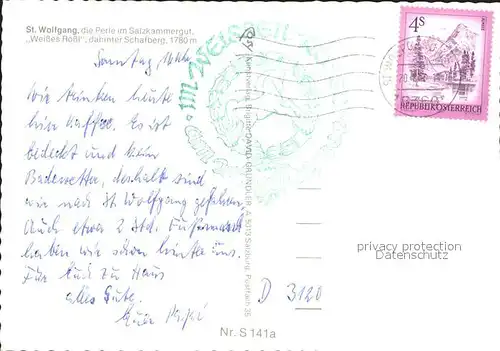 St. Wolfgang, die Perle im Salzkammergut,
„Weißes Rößl", dahinter Schafberg, 1780 m
Sonntag,
Wir trinken heute
hier Kaffee. Es ist
bedeckt und kein
Badewetter, deshalb sind
wir nach St Wolfgang gefahren.
Auch etwa 2 Std.
haben wir schon hinter uns.
Für Euch zu Haus
alles Gute.
Eure
Nr. S 141a
DAVID GRÜNDLER, A 5013 Salzburg, Postfach 35
im Weissen
4S
REPUBLIK ÖSTERREICH
privacy protection
Datenschutz
D 3120